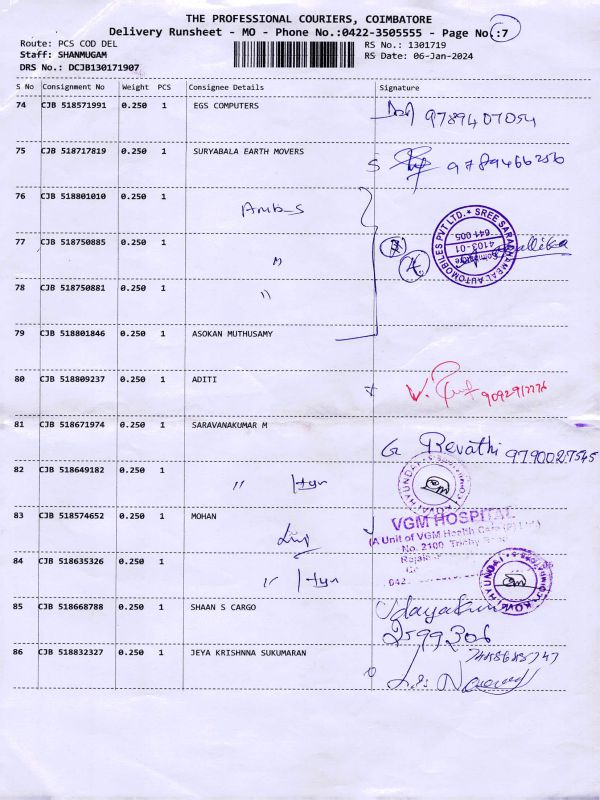 THE PROFESSIONAL COURIERS, COIMBATORE
Delivery Runsheet - MO - Phone No.:0422-3505555 - Page No.:7
Route: PCS COD DEL
RS No.: 1301719
Staff: SHANMUGAM
RS Date: 06-Jan-2024
DRS No.: DCJB130171907
S No Consignment No Weight PCS Consignee Details Signature
74 CJB 518571991 0.250 1 EGS COMPUTERS 9789407054
75 CJB 518717819 0.250 1 SURYABALA EARTH MOVERS 9789466256
76 CJB 518801010 0.250 1
77 CJB 518750885 0.250 1 "
4
SREE SARADHAMBAL AUTOMOBILES PVT LTD.
4103-01
Coimbatore
641 005
78 CJB 518750881 0.250 1 "
79 CJB 518801846 0.250 1 ASOKAN MUTHUSAMY
80 CJB 518809237 0.250 1 ADITI
81 CJB 518671974 0.250 1 SARAVANAKUMAR M
G Revathi 9790027545
82 CJB 518649182 0.250 1 "
83 CJB 518574652 0.250 1 MOHAN
VGM HOSPITAL
(A Unit of VGM Health Care (P) Ltd.)
No. 2100, Trichy Road
84 CJB 518635326 0.250 1 "
HYUNDAI
85 CJB 518668788 0.250 1 SHAAN S CARGO Udayakum
2599306
86 CJB 518832327 0.250 1 JEYA KRISHNNA SUKUMARAN